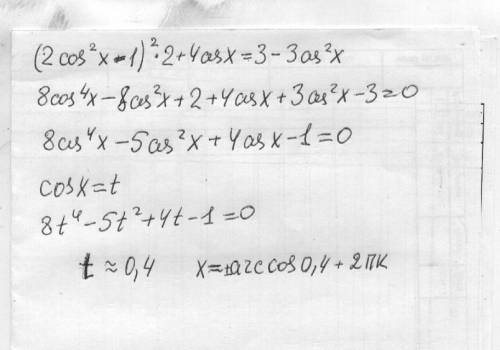 (2cos²x-1)²·2+4cosx=3-3cos²x
8cos⁴x-8cos²x+2+4cosx+3cos²x-3=0
8cos⁴x-5cos²x+4cosx-1=0
cosx=t
8t⁴-5t²+4t-1=0
t≈0,4 x=±arccos0,4+2πk